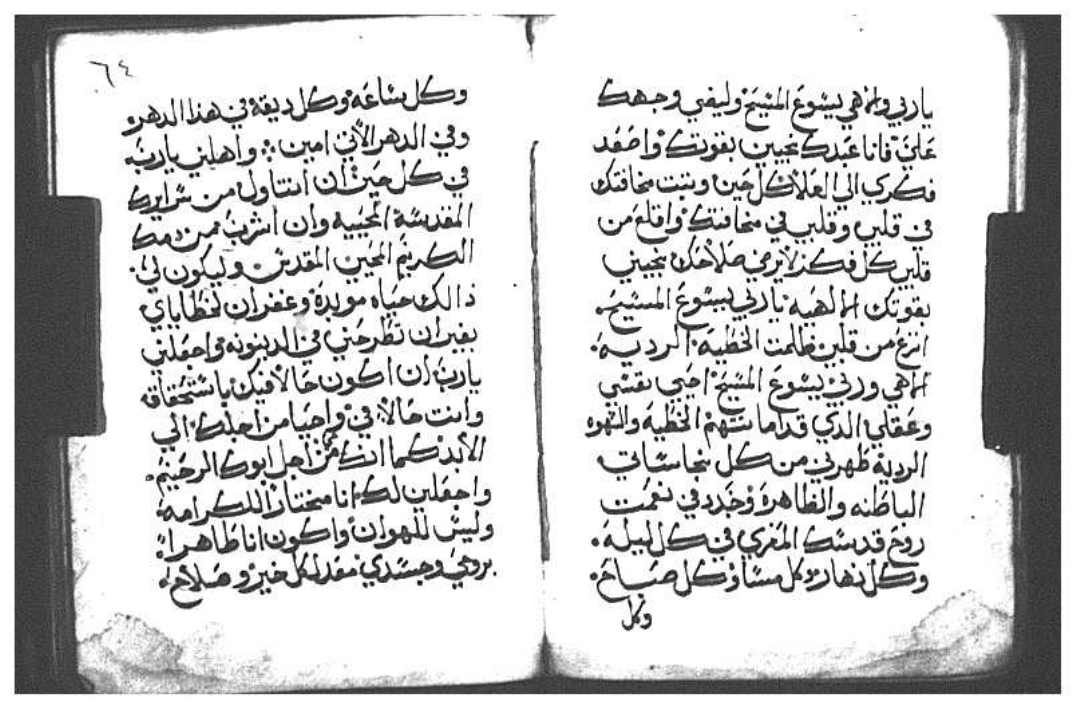 ياربي والاهي يسوع المسيح وليضي وجهك
علي فانا عبدك تحيين بقوتك واصعد
فكري الي العلا كل حين ويتبت مخافتك
في قلبي وقلبي في مخافتك واقلع من
قلبي كل فكر لا يرضي صلاحك نجيني
بقوتك الالهيه ياربي يسوع المسيح.
انزع من قلبي ظلمت الخطية الرديه.
الاهي وربي يسوع المسيح احيي نفسي
وعقلي الذي قد اماتتهم الخطية والشهوه
الردية طهرني من كل نجاساتي
الباطنه والظاهرة وجدد في نعمت
روح قدسك المعزي في كل ليله.
وكل نهار وكل مسا وكل صباح.
وكل
٦٤
وكل ساعه وكل ديقة في هذا الدهر
وفي الدهر الاتي امين واهلني يارب
في كل حين ان اتناول من سرايرك
المقدسة المحييه وان اشرب من دمك
الكريم المحيي المقدس وليكون لي
ذالك حياه موبدة وغفران لخطاياي
بغير ان تطرحني في الدينونه واجعلني
يارب ان اكون حالا فيك باستحقاقه
وانت حالا في واحيا من اجلك الي
الابد كما انك حي من اجل ابوك الرحيم.
واجعلني لك انا مختارا للكرامه
وليس للهوان واكون انا طاهرا
بروحي وجسدي معد لكل خير وصلاح